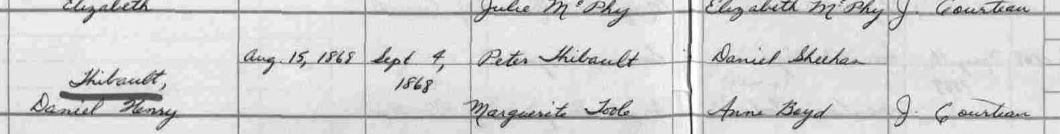 Elizabeth Julie McPhy Elizabeth McPhy J. Courtian
Aug. 15, 1868 Sept 4, Peter Thibault Daniel Sheehan
Thibault, 1868
Daniel Henry Marguerite Toole Anne Boyd J. Courtian